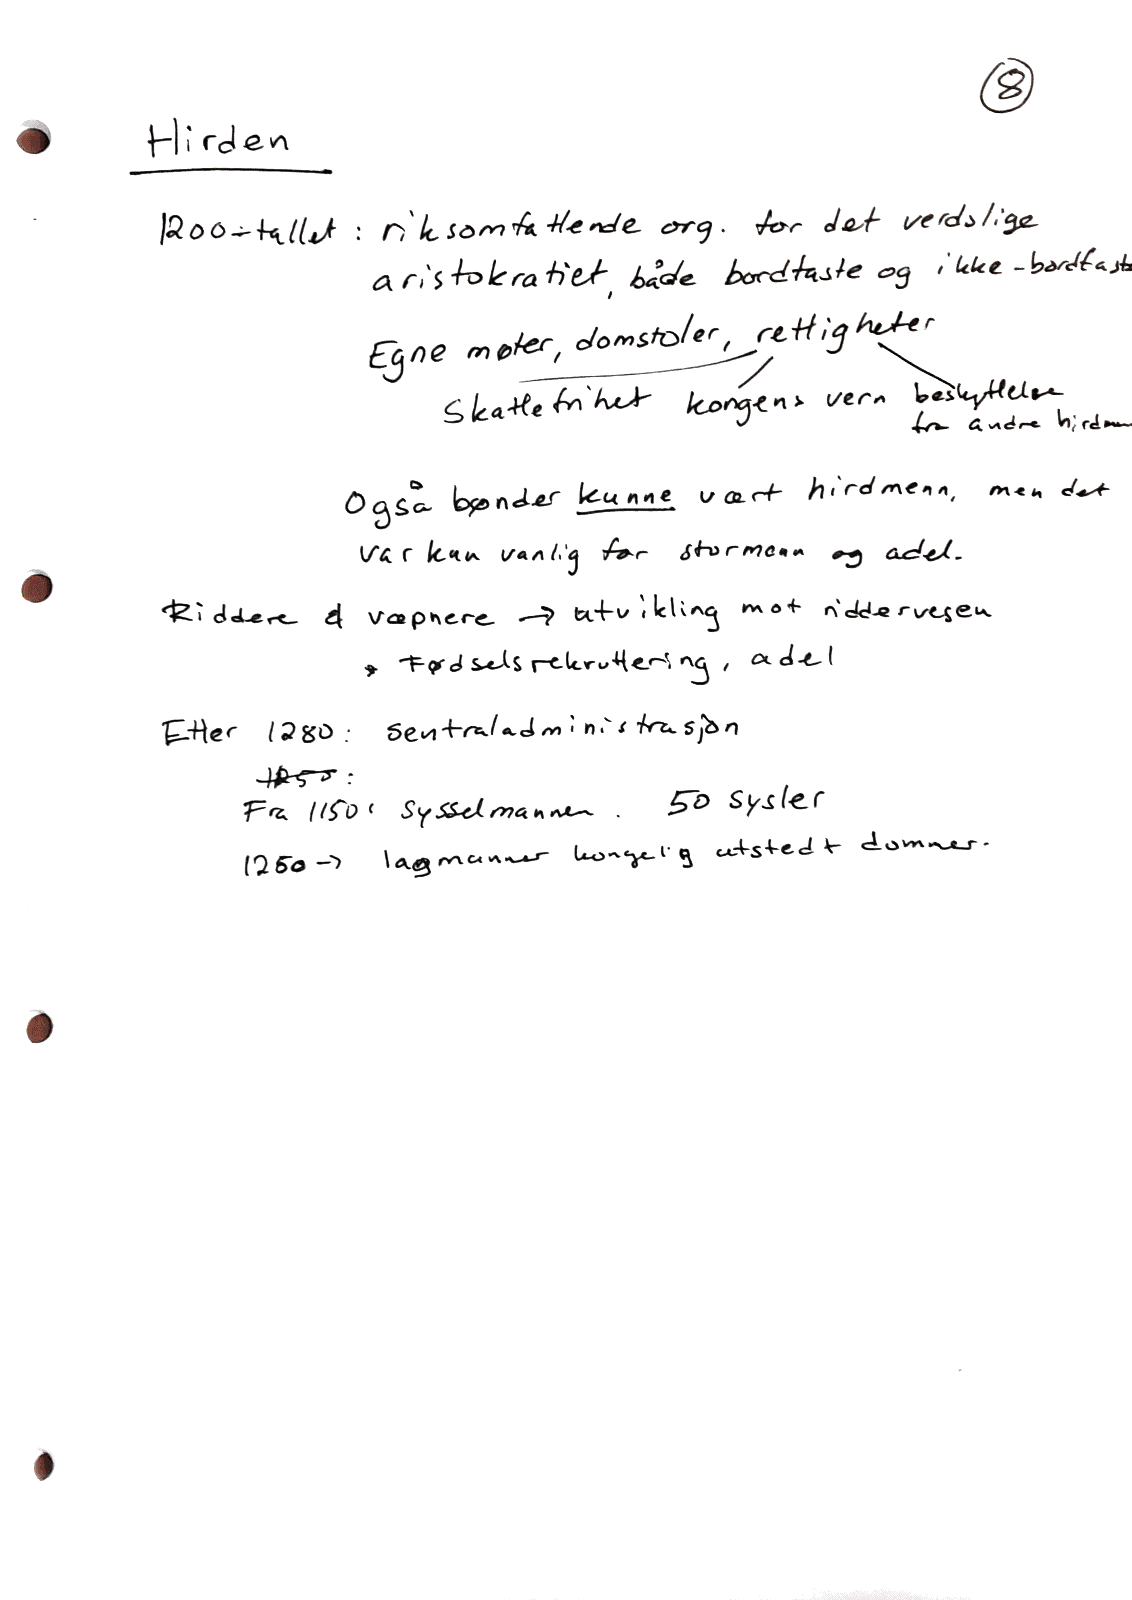 8
Hirden
1200-tallet: riksomfattende org. for det verdslige
aristokratiet, både bordfaste og ikke-bordfaste
Egne møter, domstoler, rettigheter
Skattefrihet kongens vern beskyttelse
fra andre hirdmenn
Også bønder kunne vært hirdmenn, men det
var kun vanlig for stormenn og adel.
Riddere & væpnere → utvikling mot riddervesen
* Fødselsrekruttering, adel
Etter 1280: sentraladministrasjon
1250:
Fra 1150: Sysselmannen. 50 sysler
1260 → lagmanner kongelig utstedt dommer.